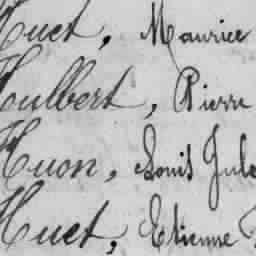 Huet, Maurice
Houlbert, Pierre
Huon, Louis Jule
Huet, Etienne